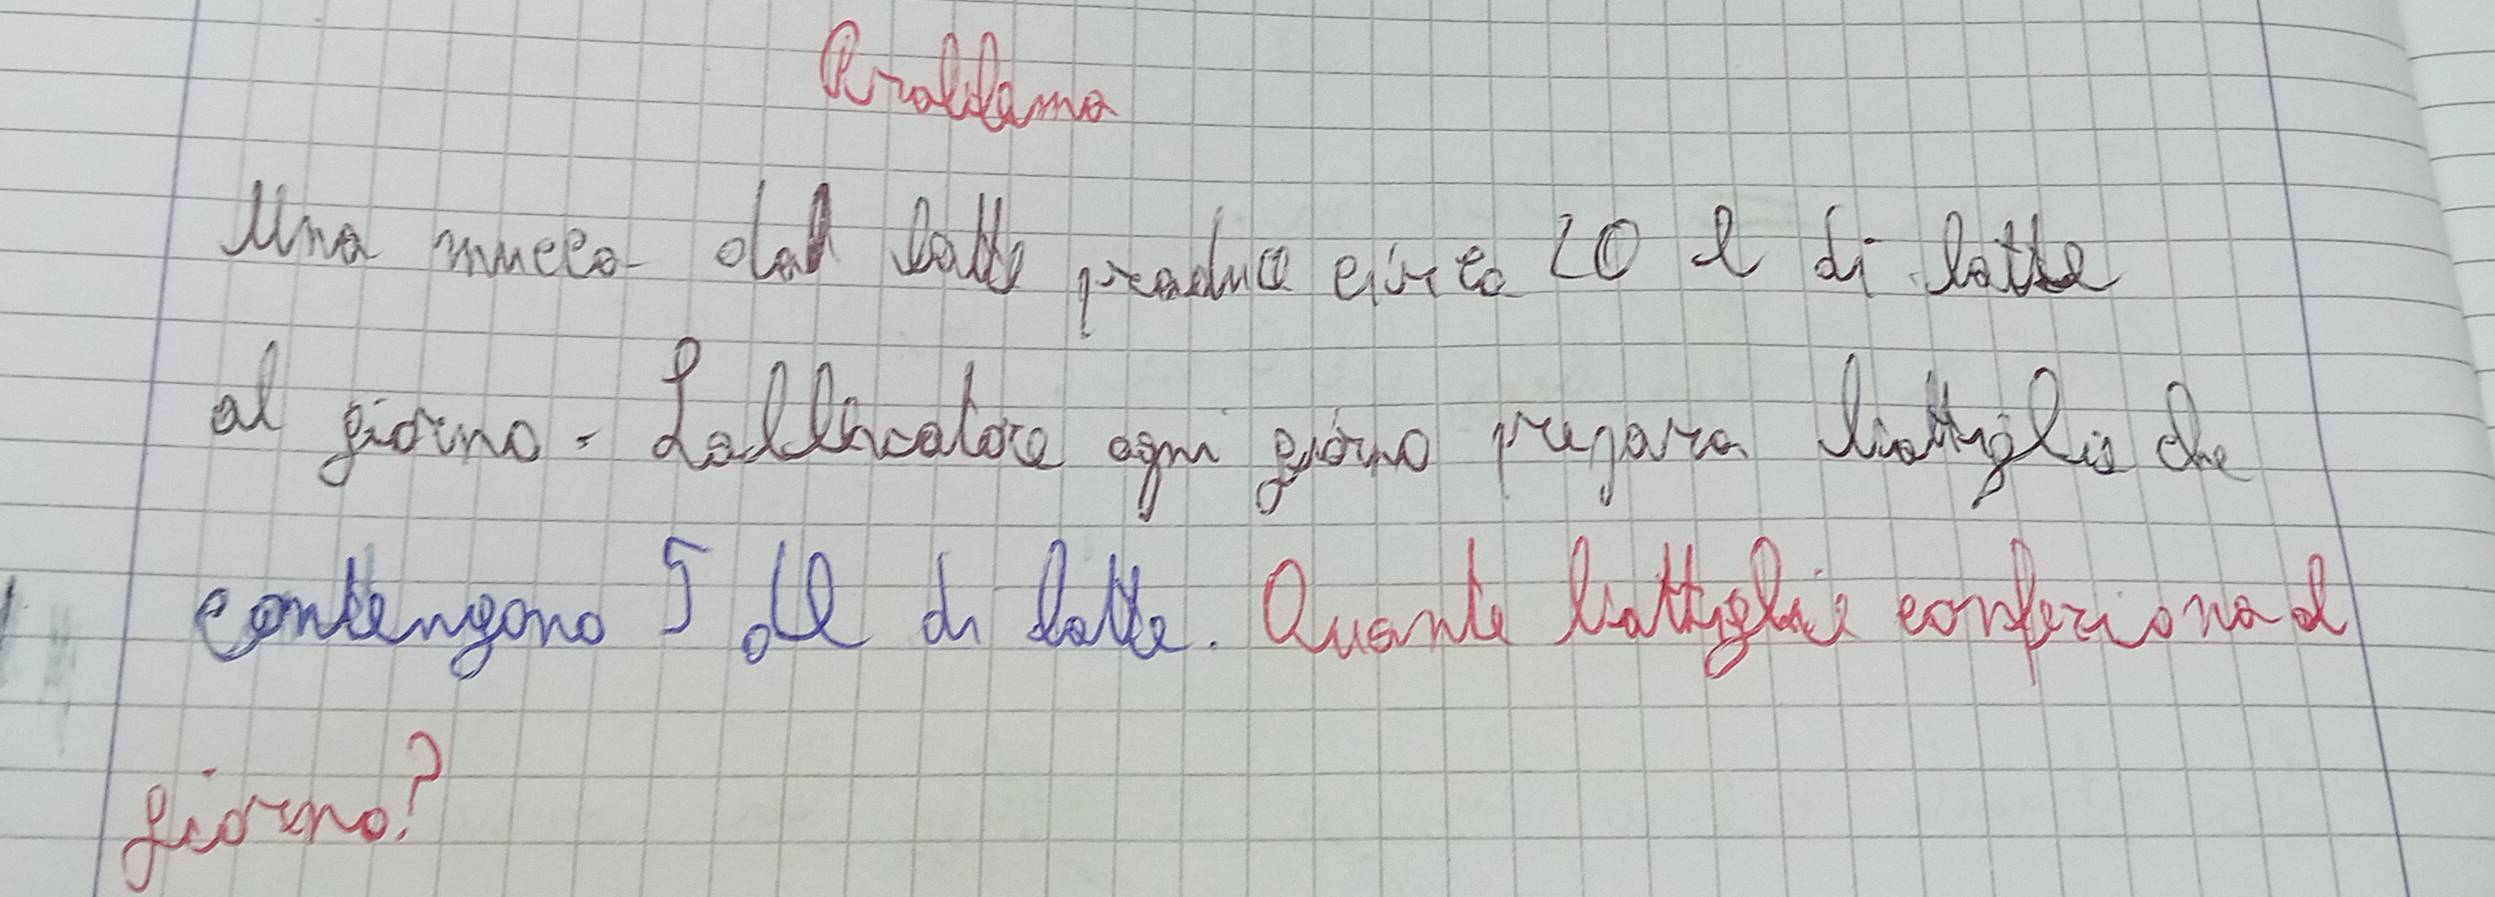 Problema
Una mucca dal latte produce circa 20 l di latte
al giorno. L'allevatore ogni giorno prepara bottiglie che
contengono 5 dl di latte. Quante bottiglie conferziona al
giorno?